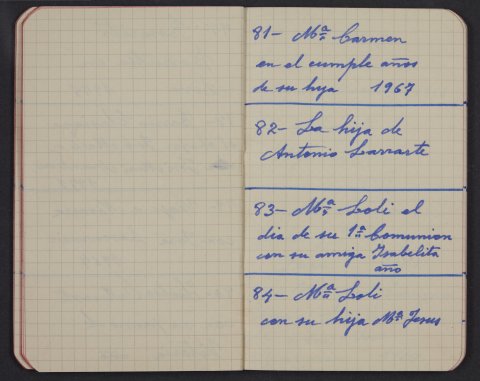 81- Mª Carmen
en el cumple años
de su hija 1967
82- La hija de
Antonio Larrarte
83- Mª Loli el
dia de su 1ª Comunion
con su amiga Isabelita
año
84- Mª Loli
con su hija Mª Jesus